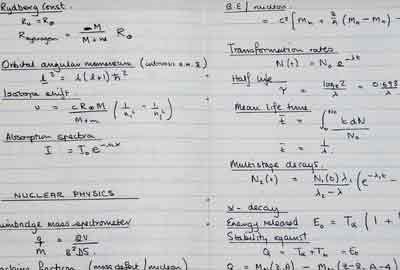 Rydberg Const.
R₀ = R∞
R_Hydrogen = M / M+m R∞
Orbital angular momentum
l² = l(l+1)ħ²
Isotope shift.
υ = cR∞M / M+m (1/n₁² - 1/n₂²)
Absorption spectra
I = I₀e
NUCLEAR PHYSICS
mass spectrometer
q/m = 2V / B²DS
fraction (mass defect / nucleon)
B.E / nucleon
= c² [Mₙ +
Transformation rates
N(t) = N₀e^-λt
Half life
τ = logₑ2 / λ = 0.693
Mean life time
t̄ = ∫ t dN / N₀
t̄ = 1/λ
Multistage decays.
N₂(t) = N₁(0)λ₁ / λ₂ - λ₁ (e^-λ₁t -
α - decay
Energy released E₀ = Tα (1 +
Stability against
Q = Tα + Tb = E₀